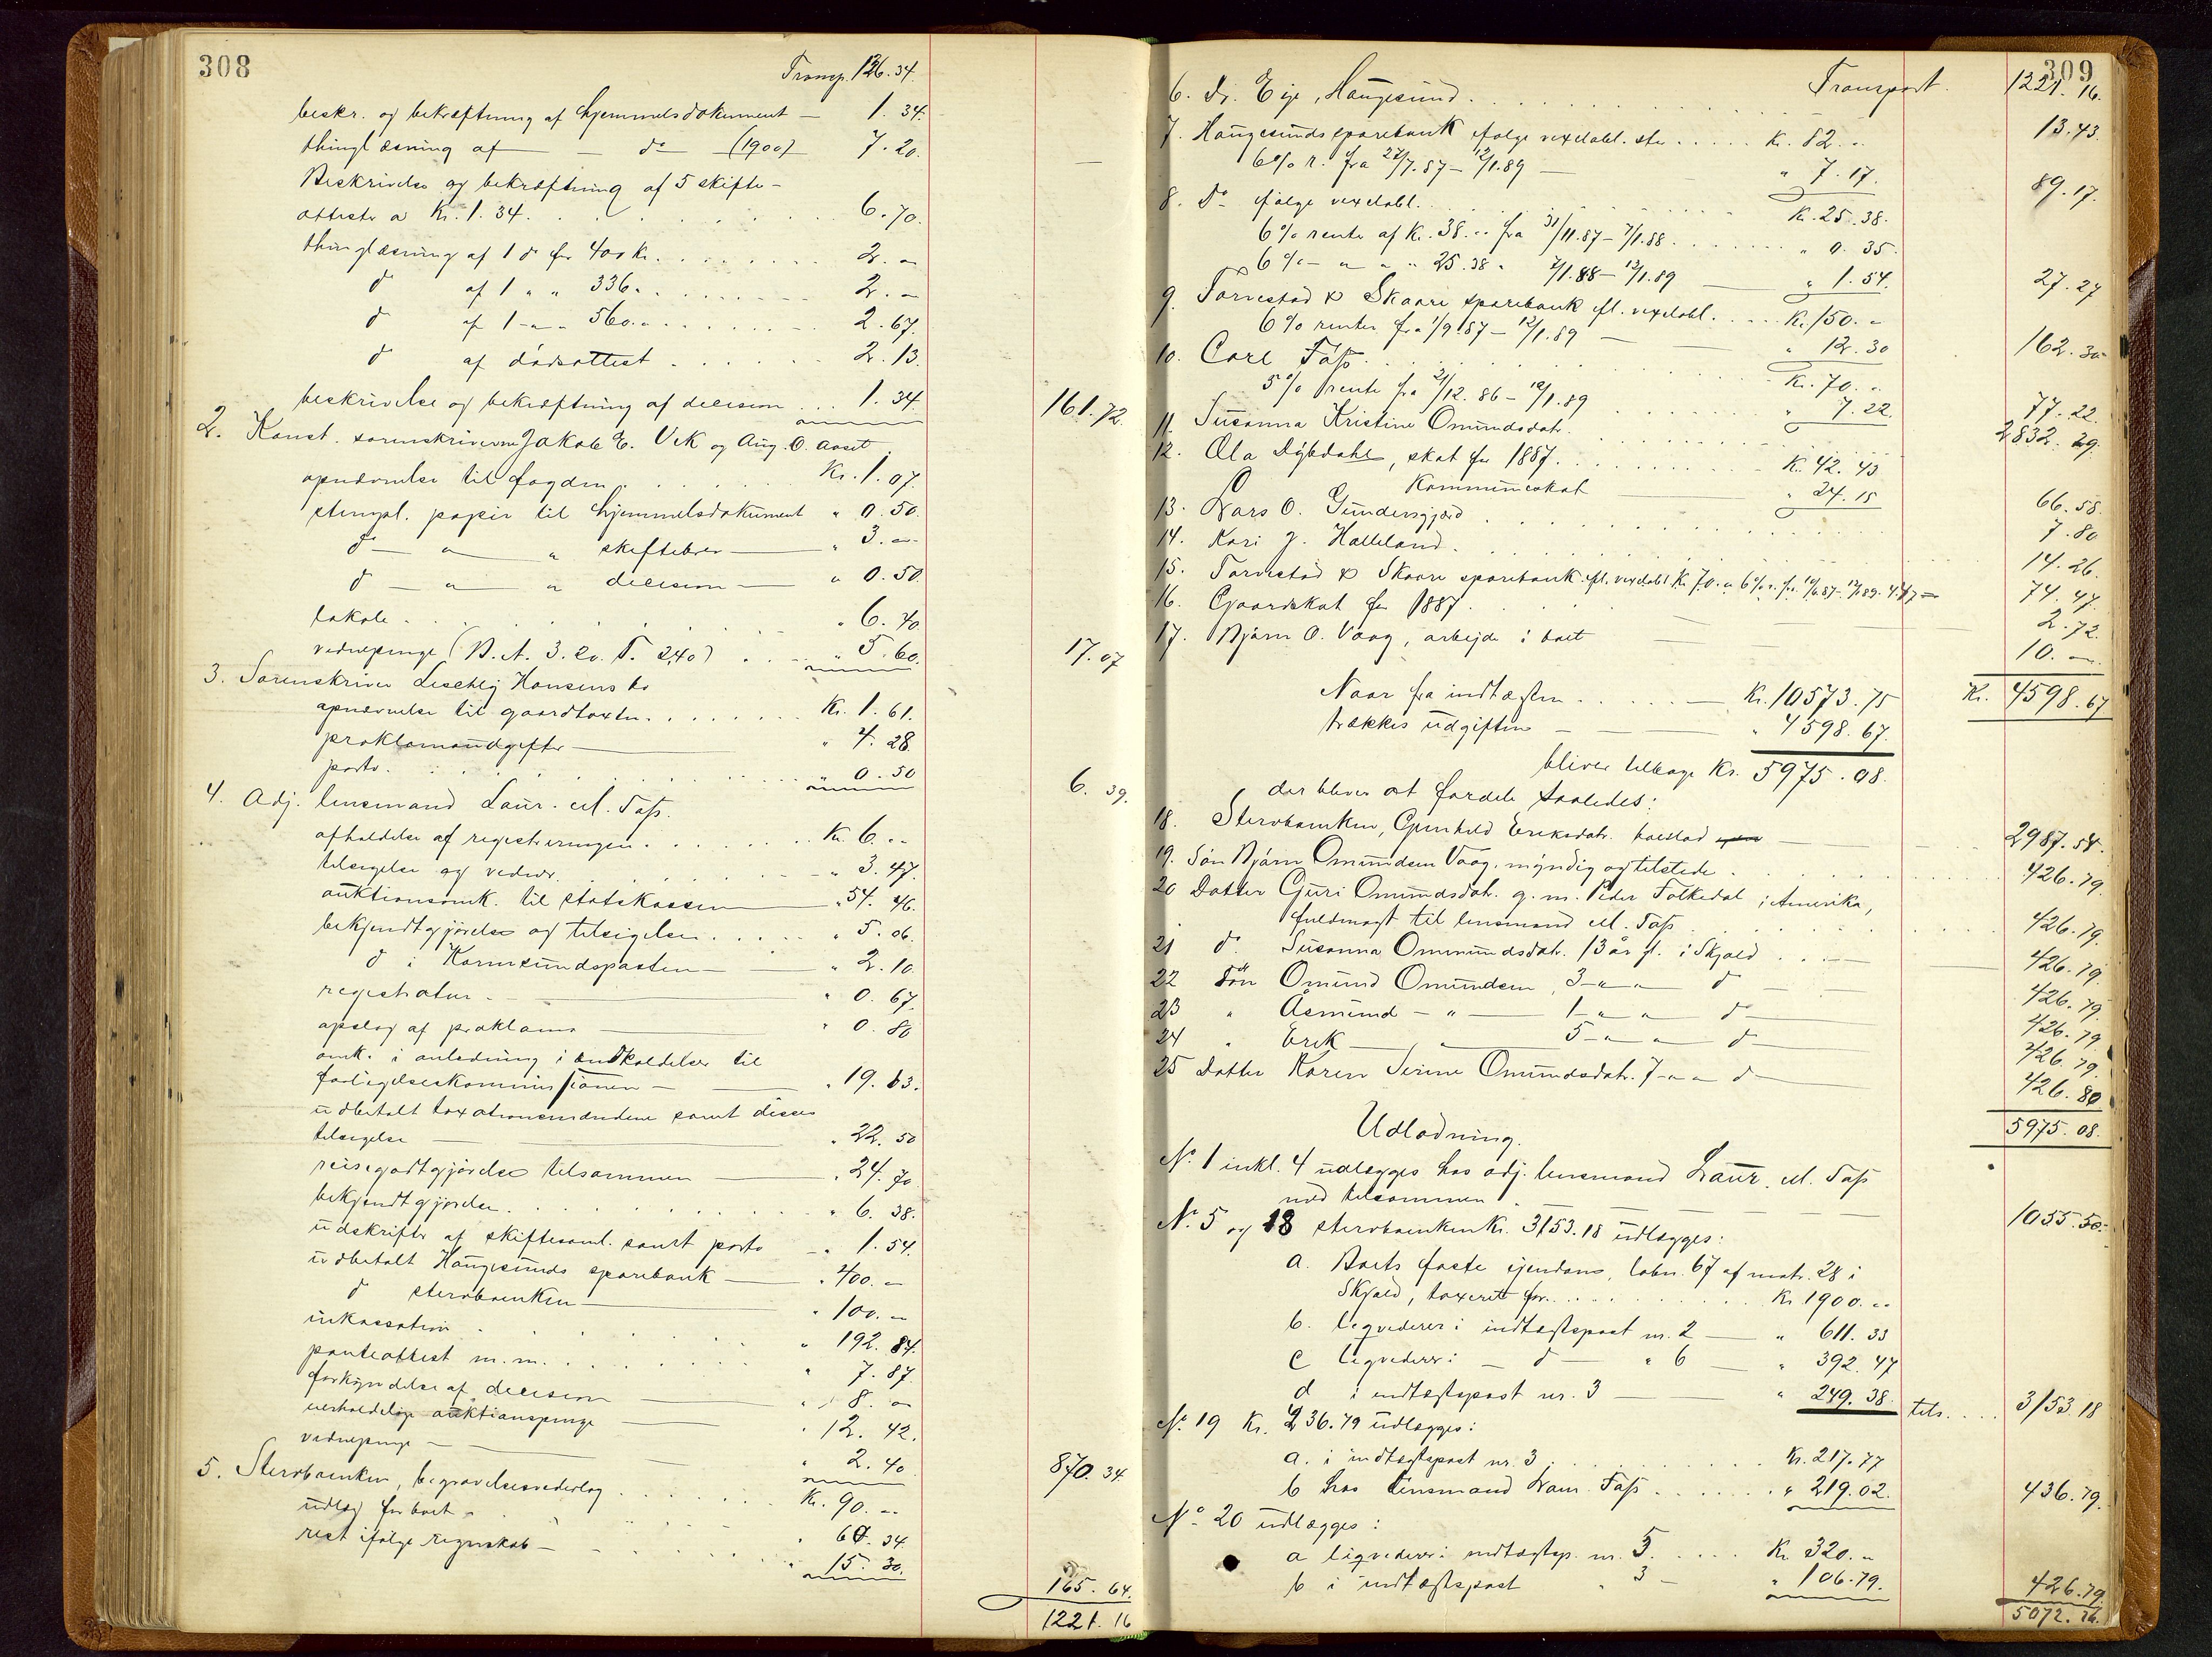 308
Transp. 126.34.
beskr. og bekræftning af hjemmelsdokument — 1.34.
thinglæsning af — do (1900) 7.20.
Beskrivelse og bekræftning af 5 skifte-
attester a Kr. 1.34. 6.70.
thinglæsning af 1 do for 400 kr. 2. "
do af 1 " " 336. " 2. "
do af 1 - " - 560. " 2.67.
do af dødsattest 2.13.
beskrivelse og bekræftning af decision 1.34. 161.72.
2. Konst. sorenskriverne Jakob E. Vik og Aug. O. Aaset
opnævnelse til fogden Kr. 1.07.
stempl. papir til hjemmelsdokument " 0.50.
do — " — " skiftebrev — " 3. "
do — " — " decision — " 0.50.
lokale " 6.40
vidnepenge (B.A. 3.20. T. 2.40) " 5.60. 17.07
3. Sorenskriver Leschly Hansens bo
opnævnelse til gaardtaxter Kr. 1.61.
proklamaudgifter — " 4.28.
porto " 0.50 6.39.
4. Adj. lensmand Laur. M. Tass.
afholdelse af registreringen Kr. 6. "
tilsigelse og vidner " 3.47.
auktionsomk. til statskassen — " 54.46.
bekjendtgjørelse og tilsigelse " 5.06.
do i Karmsundsposten — " 2.10.
registratur — " 0.67.
opslag af proklama — " 0.80
omk. i anledning indkaldelser til
forligelseskommissionen — " 19.63.
udbetalt taxationsmændene samt disses
tilsigelse — " 22.50
reisegodtgjørelse tilsammen — " 24.70
bekjendtgjørelse " 6.38.
udskrifter af skiftesaml. samt porto — " 1.54.
udbetalt Haugesunds sparebank — " 400. "
do sterbboenken — " 100. "
inkassation " 192.84.
panteattest m.m. " 7.87.
forkyndelse af decision — " 8. "
uerholdelige auktionspenge — " 12.42.
vidnepenge — " 2.40 870.34
5. Sterbboenken, begravelsesvederlag Kr. 90. "
udlæg for boet " 60.34
rest ifølge regnskab — " 15.30. 165.64.
1221.16
309
Transport. 1221.16.
6. Dr. Eije, Haugesund. 13.43.
7. Haugesunds sparebank ifølge vexelobl. stor Kr. 82. "
6% r. fra 27/7.87 – 12/1.89 — " 7.17. 89.17.
8. Do ifølge vexelobl. Kr. 25.38.
6% rente af Kr. 38. " fra 31/11.87 – 7/1.88 " 0.35.
6% — " — " 25.38. " 7/1.88 – 12/1.89 — " 1.54. 27.27
9. Torvestad & Skaare sparebank ifl. vexelobl. Kr. 150. "
6% renter fra 1/9.87 – 12/1.89 — " 12.30 162.30
10. Carl Tass Kr. 70. "
5% rente fra 21/12.86 – 12/1.89 " 7.22. 77.22.
11. Susanna Kristine Omundsdatr. 2832.29.
12. Ola Dybdahl, skat for 1887 Kr. 42.43
Kommuneskat — " 24.15 66.58.
13. Lars O. Gundersgjerd 7.80
14. Kari J. Halleland. 14.26.
15. Torvestad & Skaare sparebank ifl. vexelobl. Kr. 70. " 6% r. fra 12/6.87 – 12/1.89. 4.47 = 74.47.
16. Gaardskat for 1887. 2.72.
17. Bjørn O. Vaag, arbejde i boet 10. "
Kr. 4598.67
Naar fra indtægten — Kr. 10573.75
trækkes udgiften — " 4598.67.
bliver tilbage Kr. 5975.08.
der bliver at fordele saaledes:
18. Sterbboenken, Gunhild Eriksdatr. boeslod — 2987.54.
19. Søn Bjørn Omundsen Vaag, myndig og tilstede 426.79.
20 Datter Guri Omundsdatr. g. m. Peder Folkedal i Amerika,
fuldmagt til lensmand M. Tass 426.79.
21 do Susanna Omundsdatr. 13 år gl. i Skjold — 426.79.
22 Søn Omund Omundsen, 3 - " - " — do — 426.79.
23 " Åsmund — " — 1 - " - " — do — 426.79.
24 " Erik — 5 - " - " — do — 426.79.
25 Datter Karen Serine Omundsdatr. 7 - " - " do — 426.80
5975.08.
Udlodning.
No. 1 inkl. 4 udlægges hos adj. lensmand Laur. M. Tass
med tilsammen — 1055.50.
No. 5 og 18 sterbboenken Kr. 3153.18 udlægges:
a. Boets faste ejendom, løbn. 67 af matr. 28 i
Skjold, taxeret for Kr. 1900. "
b. liqviderer i indtægtspost nr. 2 — " 611.33
c liqviderer i — do — " 6 — " 392.47
d i indtægtspost nr. 3 — " 249.38. tils. 3153.18
No. 19 Kr. 436.79 udlægges:
a. i indtægtspost nr. 3 Kr. 217.77
b hos lensmand Laur. Tass " 219.02. 436.79.
No. 20 udlægges:
a liqviderer i indtægtsp. nr. 5. Kr. 320. "
b i indtægtspost " 3 — " 106.79. 426.79.
5072.26.